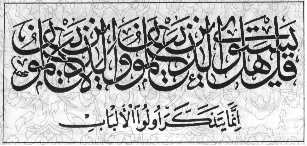 قُلْ هَلْ يَسْتَوِي الَّذِينَ يَعْلَمُونَ وَالَّذِينَ لَا يَعْلَمُونَ
إِنَّمَا يَتَذَكَّرُ أُولُوا الْأَلْبَابِ